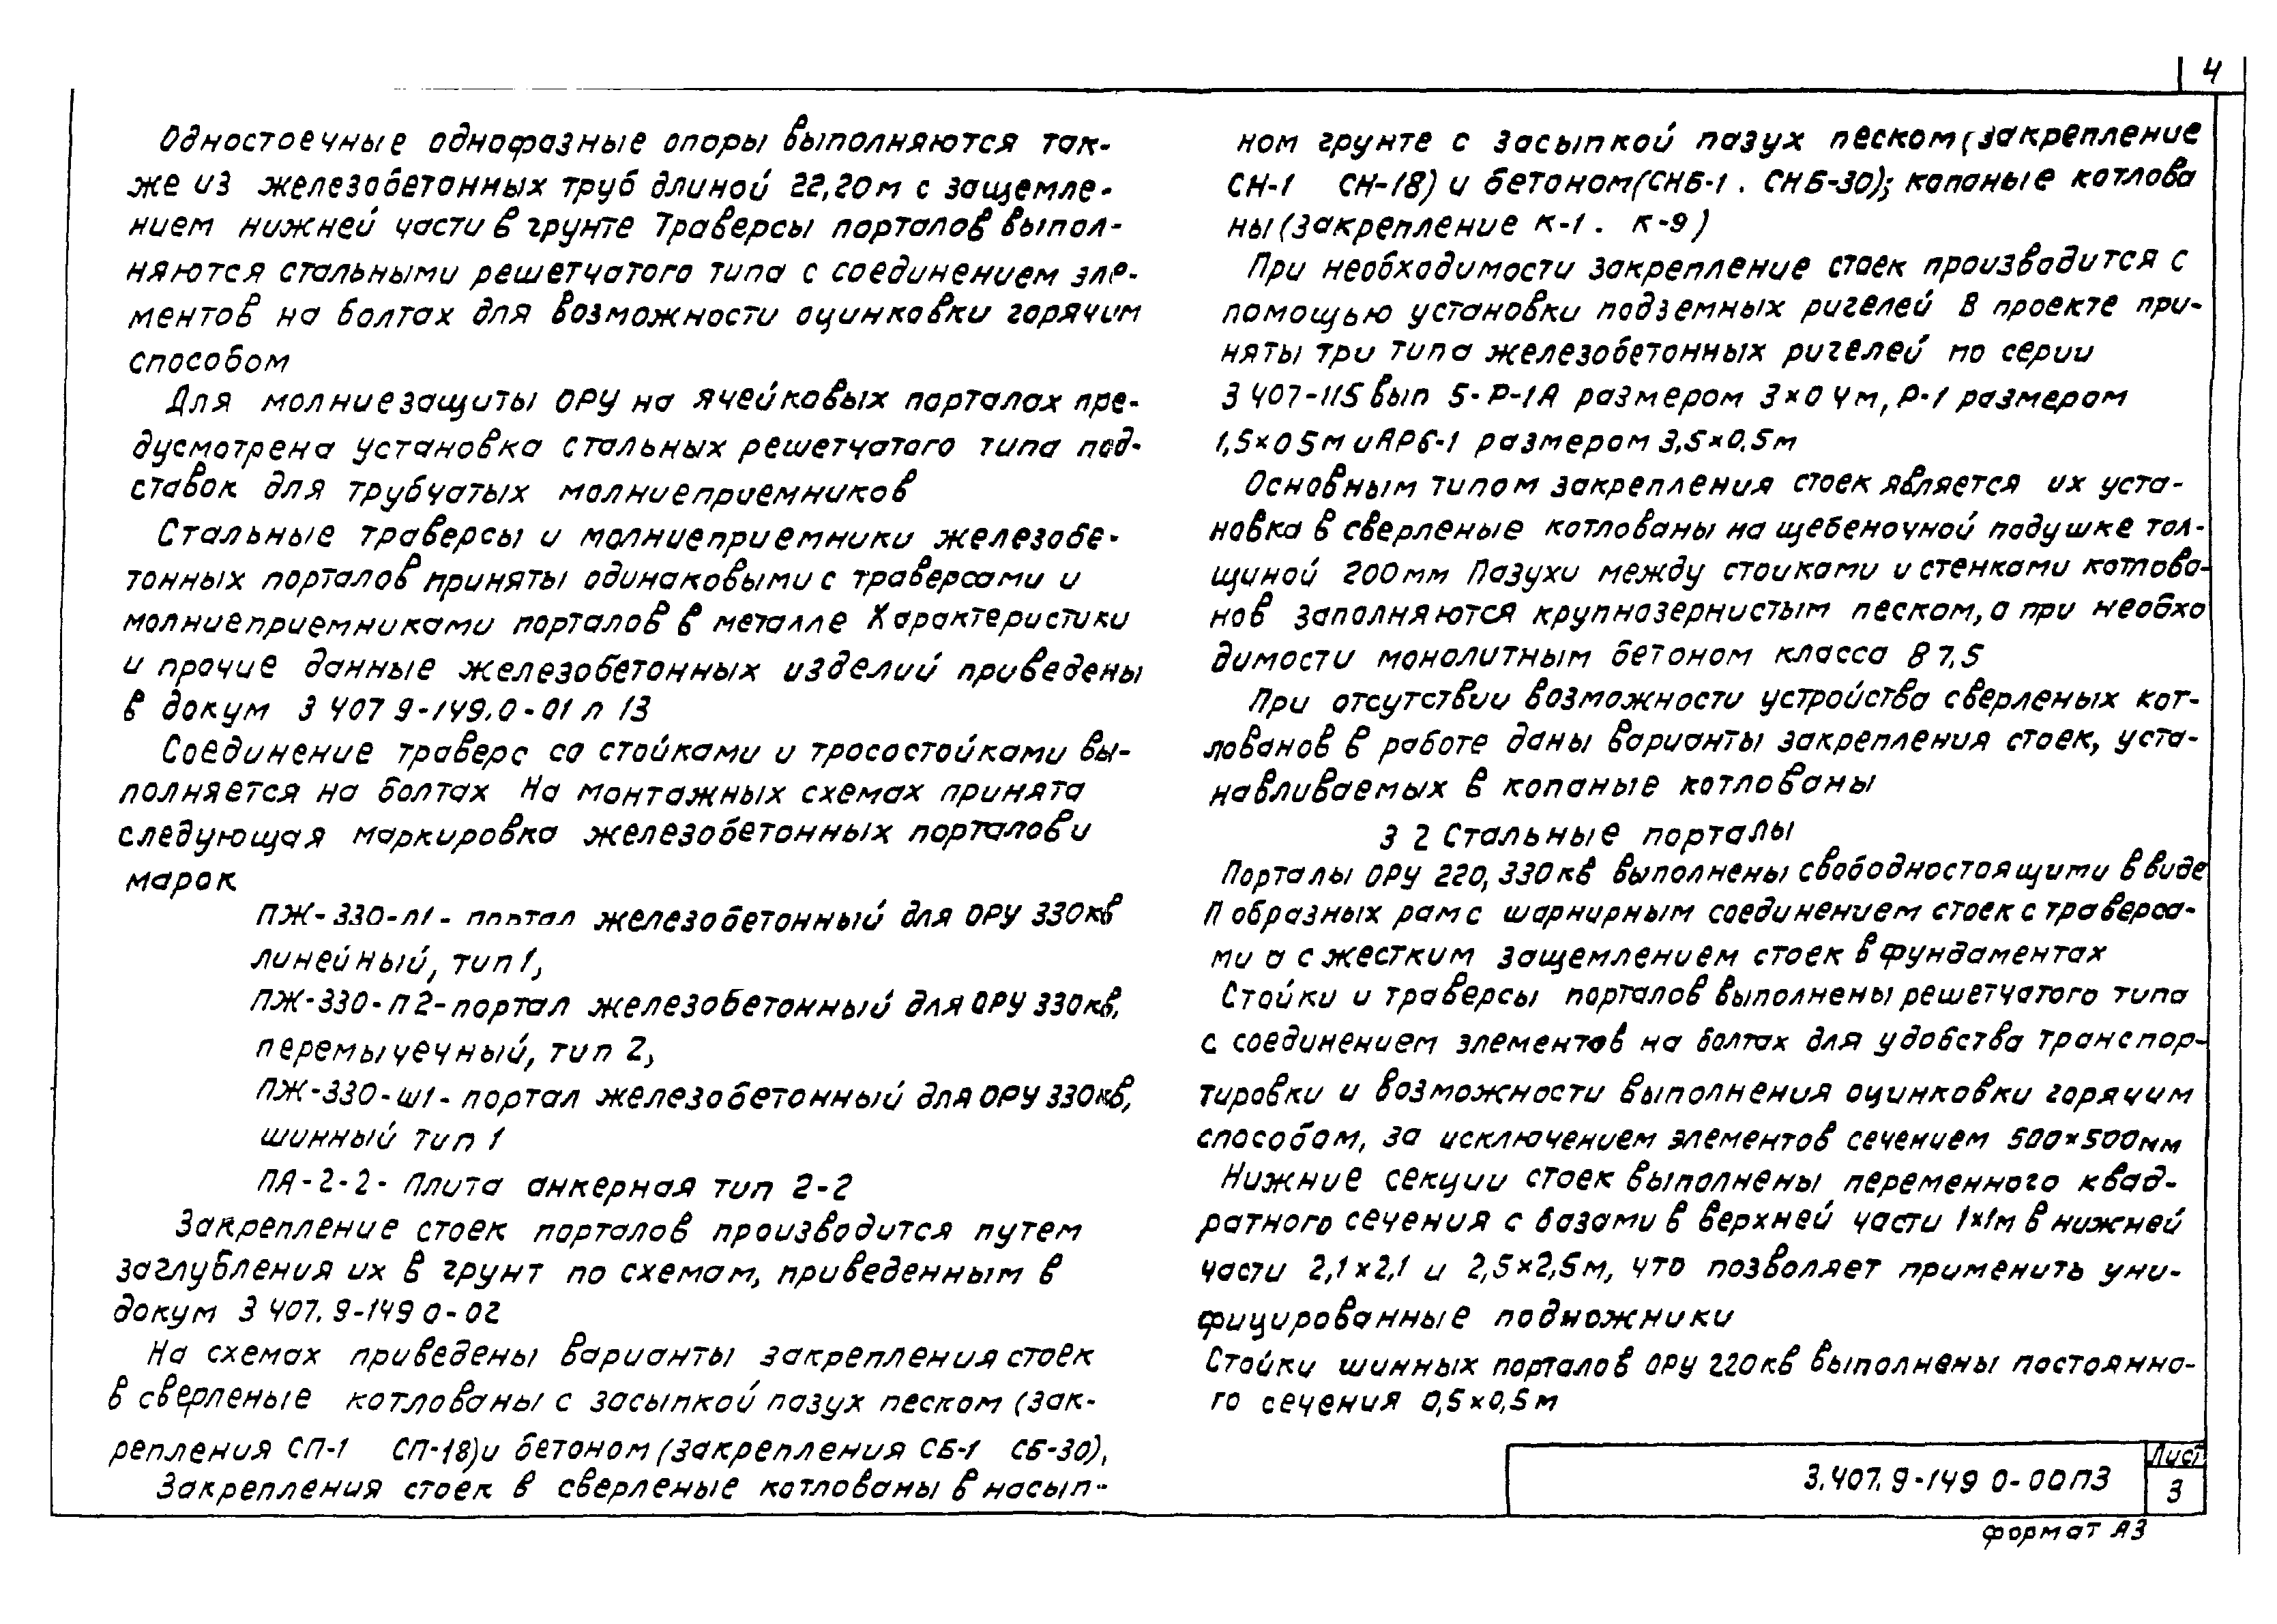 4
Одностоечные однофазные опоры выполняются так-
же из железобетонных труб длиной 22,20м с защемле-
нием нижней части в грунте Траверсы порталов выпол-
няются стальными решетчатого типа с соединением эле-
ментов на болтах для возможности оцинковки горячим
способом
Для молниезащиты ОРУ на ячейковых порталах пре-
дусмотрена установка стальных решетчатого типа под-
ставок для трубчатых молниеприемников
Стальные траверсы и молниеприемники железобе-
тонных порталов приняты одинаковыми с траверсами и
молниеприемниками порталов в металле Характеристики
и прочие данные железобетонных изделий приведены
в докум 3 407 9-149.0-01 л 13
Соединение траверс со стойками и тросостойками вы-
полняется на болтах На монтажных схемах принята
следующая маркировка железобетонных порталов и
марок
ПЖ-330-Л1- портал железобетонный для ОРУ 330кв
линейный, тип 1,
ПЖ-330-П2-портал железобетонный для ОРУ 330кв,
перемычечный, тип 2,
ПЖ-330-Ш1- портал железобетонный для ОРУ 330кв,
шинный тип 1
ПА-2-2- Плита анкерная тип 2-2
Закрепление стоек порталов производится путем
заглубления их в грунт по схемам, приведенным в
докум 3 407. 9-149 0-02
На схемах приведены варианты закрепления стоек
в сверленые котлованы с засыпкой пазух песком (зак-
репления СП-1 СП-18)и бетоном (закрепления СБ-1 СБ-30),
Закрепления стоек в сверленые котлованы в насып-
ном грунте с засыпкой пазух песком (закрепление
СН-1 СН-18) и бетоном(СНБ-1 . СНБ-30); копаные котлова
ны (закрепление К-1 . К-9)
При необходимости закрепление стоек производится с
помощью установки подземных ригелей В проекте при-
няты три типа железобетонных ригелей по серии
3 407-115 вып 5- Р-1А размером 3×0 4м, Р-1 размером
1,5×0 5м и АР6-1 размером 3,5×0.5м
Основным типом закрепления стоек является их уста-
новка в сверленые котлованы на щебеночной подушке тол-
щиной 200мм Пазухи между стоиками и стенками котлова-
нов заполняются крупнозернистым песком, а при необхо
димости монолитным бетоном класса В 7.5
При отсутствии возможности устройства сверленых кот-
лованов в работе даны варианты закрепления стоек, уста-
навливаемых в копаные котлованы
3 2 Стальные порталы
Порталы ОРУ 220, 330кв выполнены свободностоящими в виде
П образных рам с шарнирным соединением стоек с траверса-
ми а с жестким защемлением стоек в фундаментах
Стойки и траверсы порталов выполнены решетчатого типа
с соединением элементов на болтах для удобства транспор-
тировки и возможности выполнения оцинковки горячим
способом, за исключением элементов сечением 500×500мм
Нижние секции стоек выполнены переменного квад-
ратного сечения с базами в верхней части 1×1м в нижней
части 2,1×2,1 и 2,5×2,5м, что позволяет применить уни-
фицированные подножники
Стойки шинных порталов ОРУ 220кв выполнены постоянно-
го сечения 0,5×0,5м
3.407. 9-149 0-00ПЗ
Лист
3
формат А3